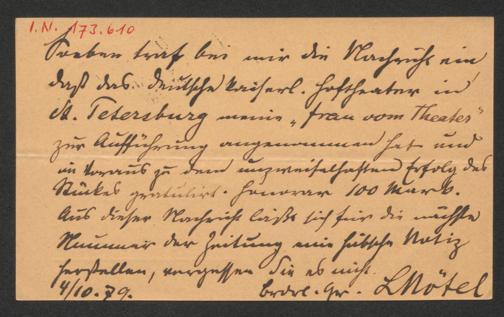 I.N. 173.610
Soeben traf bei mir die Nachricht ein
daß das deutsche kaiserl. Hoftheater in
St. Petersburg meine „Frau vom Theater“
zur Aufführung angenommen hat und
im Voraus zu dem unzweifelhaften Erfolg des
Stückes gratulirt. Honorar 100 Mark.
Aus dieser Nachricht läßt sich für die nächste
Nummer der Zeitung eine hübsche Notiz
herstellen, vergessen Sie es nicht.
4/10.79. Gr. LNötel